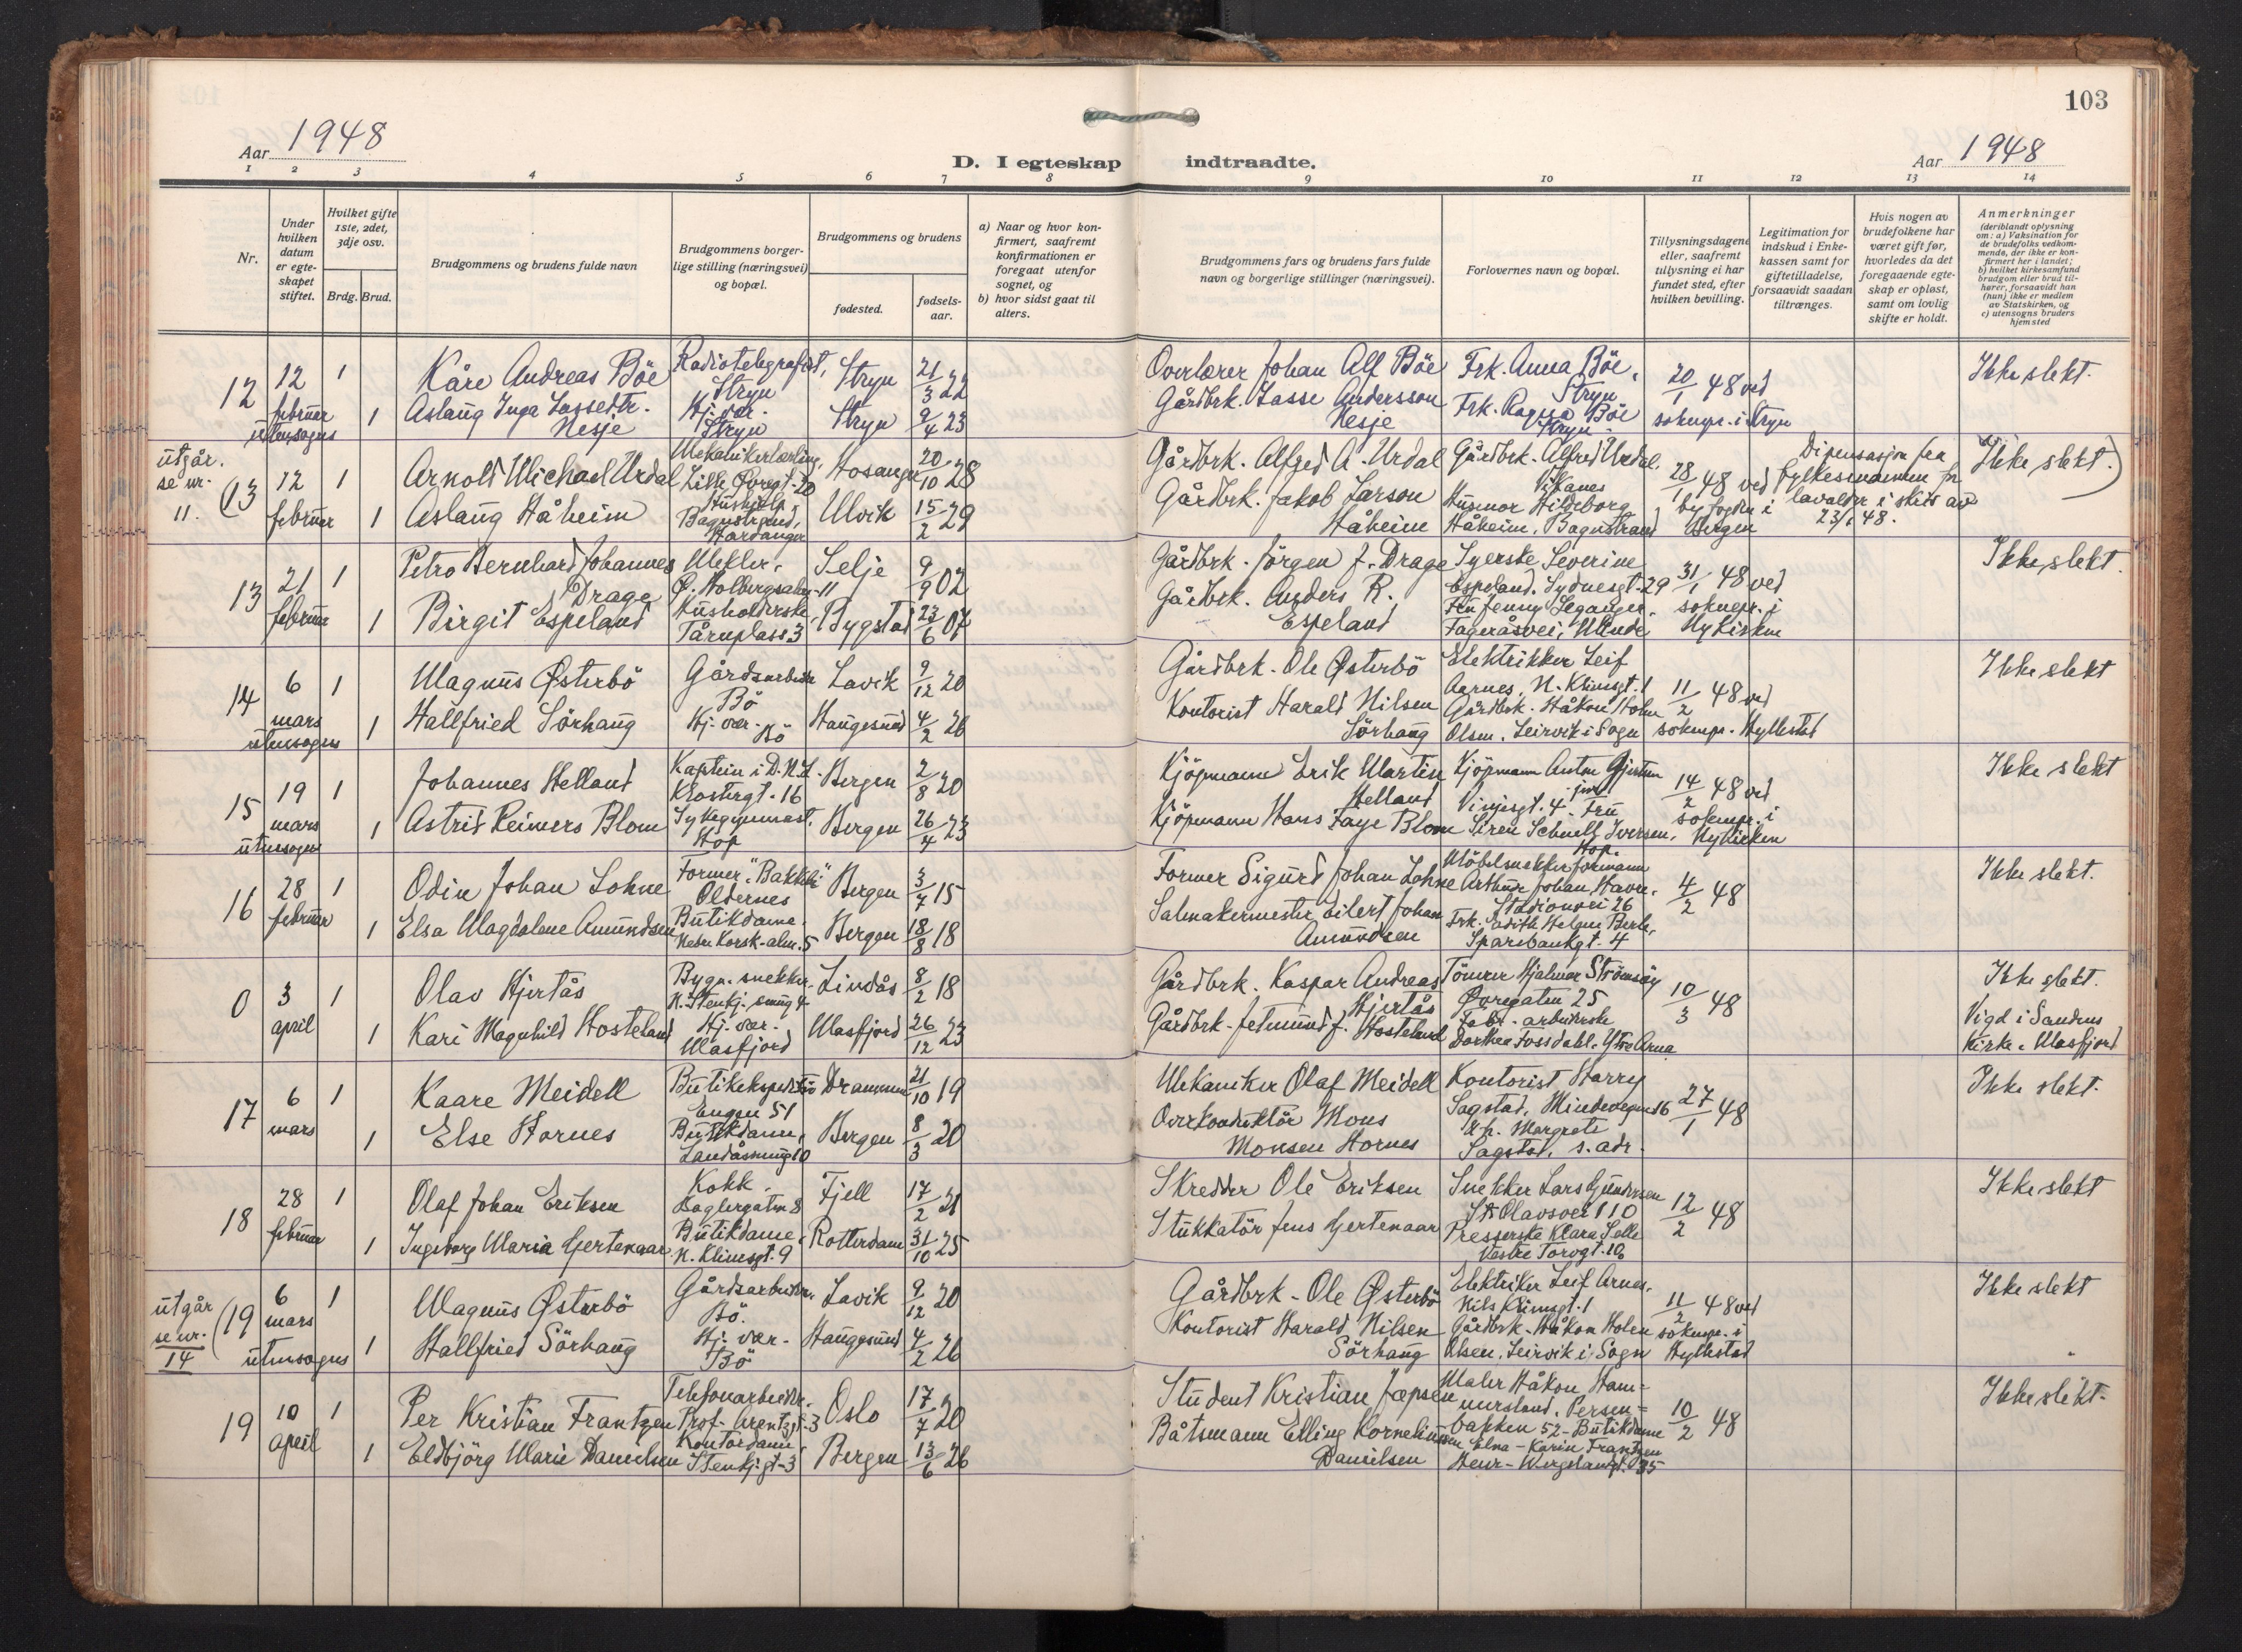 103
Aar 1948
D. I egteskap indtraadte.
Aar 1948
1 2 3 4 5 6 7 8 9 10 11 12 13 14
Nr.
Under hvilken datum er egteskapet stiftet.
Hvilket gifte 1ste, 2det, 3dje osv.
Brdg. Brud.
Brudgommens og brudens fulde navn
Brudgommens borgerlige stilling (næringsvei) og bopæl.
Brudgommens og brudens
fødested.
fødselsaar.
a) Naar og hvor konfirmert, saafremt konfirmationen er foregaat utenfor sognet, og
b) hvor sidst gaat til alters.
Brudgommens fars og brudens fars fulde navn og borgerlige stillinger (næringsvei).
Forlovernes navn og bopæl.
Tillysningsdagene eller, saafremt tillysning ei har fundet sted, efter hvilken bevilling.
Legitimation for indskud i Enkekassen samt for giftetilladelse, forsaavidt saadan tiltrænges.
Hvis nogen av brudefolkene har været gift før, hvorledes da det foregaaende egteskap er opløst, samt om lovlig skifte er holdt.
Anmerkninger (deriblandt oplysning om: a) Vaksination for de brudefolks vedkommende, der ikke er konfirmert her i landet; b) hvilket kirkesamfund brudgom eller brud tilhører, forsaavidt han (hun) ikke er medlem av Statskirken, og c) utensogns bruders hjemsted
12 12 februar utensogns 1 Kåre Andreas Böe Radiotelegrafist, Stryn Stryn 21/3 22 Overlærer Johan Alf Böe Frk. Anna Böe, Stryn 20/1 48 ved soknepr. i Stryn Ikke slekt.
1 Aslaug Inga Lassedtr. Nesje Hj. vær. Stryn Stryn 9/4 23 Gårdbrk. Lasse Andersson Nesje Frk. Ragna Böe Stryn
utgår. se nr. 11. (13 12 februar 1 Arnold Michael Urdal Mekanikerlærling, Lille Øvregt. 20 Hosanger 20/10 28 Gårdbrk. Alfred A. Urdal Gårdbrk. Alfred Urdal, Vikanes 28/1 48 ved byfogden i Bergen Dispensasjon fra fylkesmannen for lavalder i skriv av 23/1 48. Ikke slekt.)
1 Aslaug Håheim Hushjelp Bagnstrand, Hardanger Ulvik 15/2 29 Gårdbrk. Jakob Larson Håheim Husmor Hildeborg Håheim, Bagnstrand
13 21 februar 1 Petro Bernhard Johannes Drage Mekler, Ø. Holbergsalm. 11 Selje 9/9 02 Gårdbrk. Jörgen J. Drage Syerske Severine Espeland. Sydnesgt. 29 31/1 48 ved soknepr. i Nykirken Ikke slekt.
1 Birgit Espeland Husholderske Tårnplass 3 Bygstad 23/6 07 Gårdbrk. Anders R. Espeland Fru Jenny Leganger, Fageråsvei, Minde
14 6 mars utensogns 1 Magnus Østerbö Gårdsarbeider Bö Lavik 9/12 20 Gårdbrk. Ole Østerbö Elektrikker Leif Aarnes, N. Klimsgt. 1 11/2 48 ved soknepr. Hyllestad Ikke slekt
1 Hallfried Sörhaug Hj. vær. Bö Haugesund 4/2 26 Kontorist Harald Nilsen Sörhaug Gårdbrk. Håkon Holen Olsen, Leirvik i Sogn
15 19 mars utensogns 1 Johannes Helland Kaptein i D.N.L. Klostergt. 16 Bergen 2/8 20 Kjöpmann Erik Martin Helland Kjöpmann Anton Gjertsen jun. Vinjesgt. 4 14/2 48 ved soknepr. i Nykirken Ikke slekt
1 Astrid Reimers Blom Sykegymnast, Hop Bergen 26/4 23 Kjöpmann Hans Faye Blom Fru Siren Schnell Iversen, Hop.
16 28 februar 1 Odin Johan Lohne Former, "Bakkeli" Oldernes Bergen 3/7 15 Former Sigurd Johan Lohne Möbelsnekker formann Arthur Johan Havre, Stadionvei 26 4/2 48 Ikke slekt.
1 Elsa Magdalene Amundsen Butikdame, Nedre Korsk-alm. 5 Bergen 18/8 18 Salmakermester Eilert Johan Amundsen Frk. Edith Helgen Berle, Sparebankgt. 4
0 3 april 1 Olav Hjertås Bygn. snekker, N. Stenkj. smug 4 Lindås 8/2 18 Gårdbrk. Kaspar Andreas Hjertås Tömrer Hjalmar Strömsöy Øvregaten 25 10/3 48 Ikke slekt.
1 Kari Magnhild Hosteland Hj. vær. Masfjord Masfjord 26/12 23 Gårdbrk. Jetmund J. Hosteland Fabr. arbeiderske Dorthea Fossdahl. Ytre Arna Vigd i Sandnes kirke. Masfjord
17 6 mars 1 Kaare Meidell Butikekspeditör Engen 51 Drammen 21/10 19 Mekaniker Olaf Meidell Kontorist Harry Sagstad, Mindevegen 16 27/1 48 Ikke slekt.
1 Else Hornes Butikdame, Landåssmug 10 Bergen 8/3 20 Overkonduktör Mons Monsen Hornes Margrete Sagstad, s. adr.
18 28 februar 1 Olaf Johan Eriksen Kokk, Baglergaten 8 Fjell 17/2 21 Skredder Ole Eriksen Snekker Lars Gundersen St. Olavsvei 110 12/2 48 Ikke slekt
1 Ingeborg Maria Gertenaar Butikdame, N. Klimsgt. 9 Rotterdam 31/10 25 Stukkatör Jens Gertenaar Presserske Klara Selle Vestre Torvgt. 10
utgår se nr. 14 (19 6 mars utensogns 1 Magnus Østerbö Gårdsarbeider. Bö. Lavik 9/12 20 Gårdbrk. Ole Østerbö Elektriker Leif Arnes, Nils Klimsgt. 1 11/2 48 ved soknepr. i Hyllestad Ikke slekt
1 Hallfried Sörhaug Hj. vær. Bö Haugesund 4/2 26 Kontorist Harald Nilsen Sörhaug Gårdbrk. Håkon Holen Olsen, Leirvik i Sogn
19 10 april 1 Per Kristian Frantzen Telefonarbeider. Prof. Arentzgt. 3 Oslo 17/7 20 Student Kristian Jæpsen Maler Håkon Hammersland, Persenbakken 52 10/2 48 Ikke slekt.
1 Eldbjörg Marie Danielsen Kontordame, Stenkj.gt. 3 Bergen 13/6 26 Båtsmann Elling Korneliussen Danielsen Butikdame Elna-Karin Frantzen Henr. Wergelandgt. 35